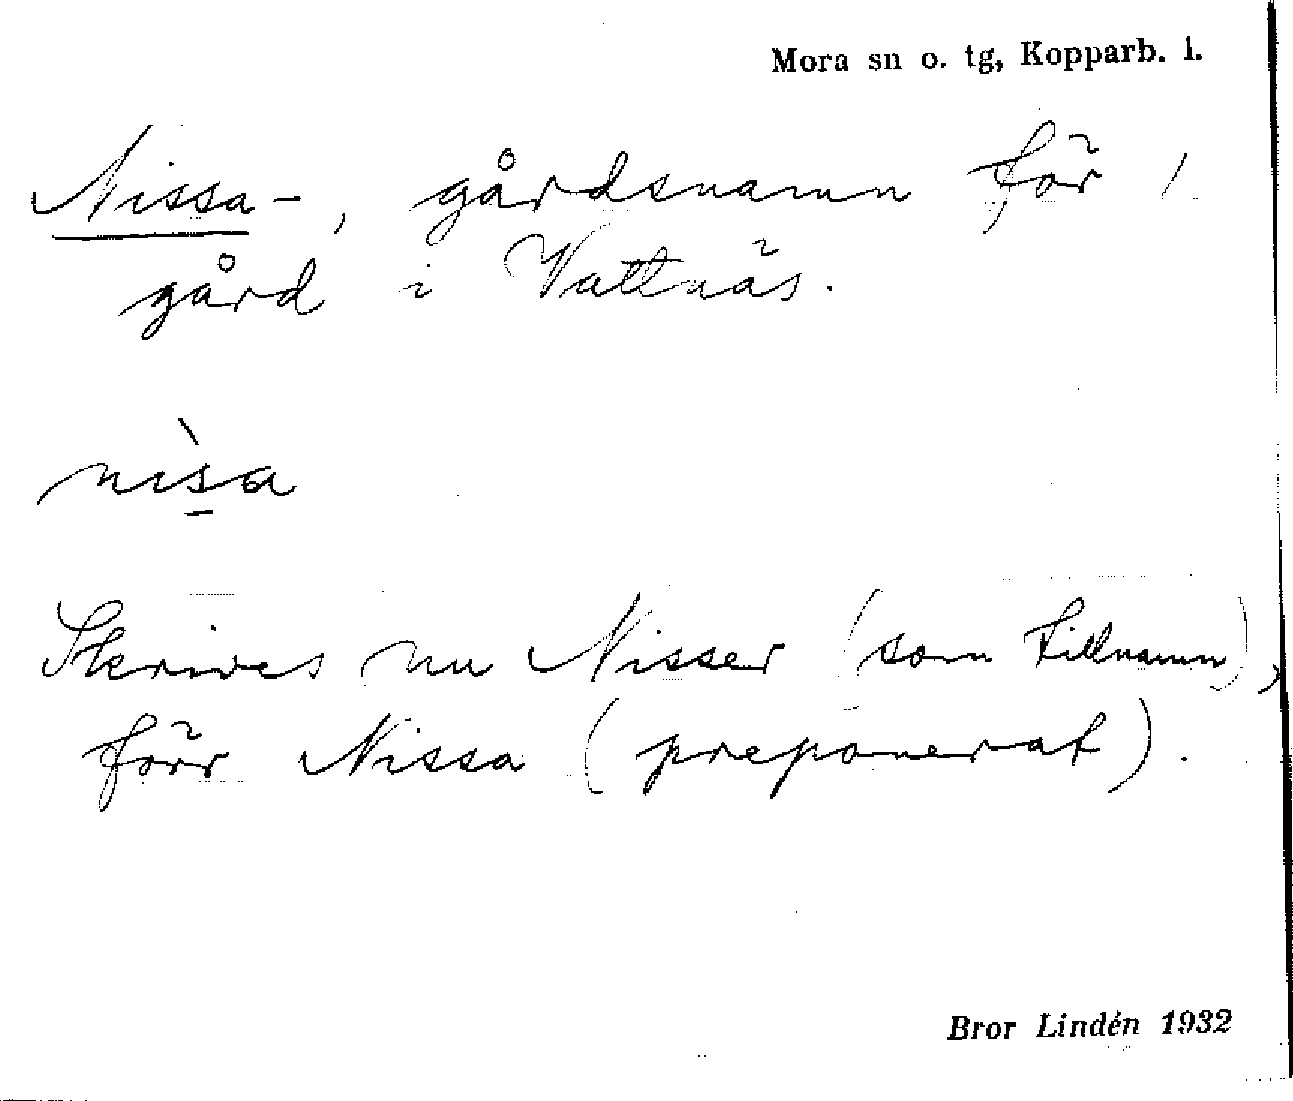 Mora sn o. tg, Kopparb. l.
Nissa-, gårdsnamn för 1
gård i Vattnäs.
nìs̱a
Skrives nu Nisser (som tillnamn),
förr Nissa (preponerat).
Bror Lindén 1932